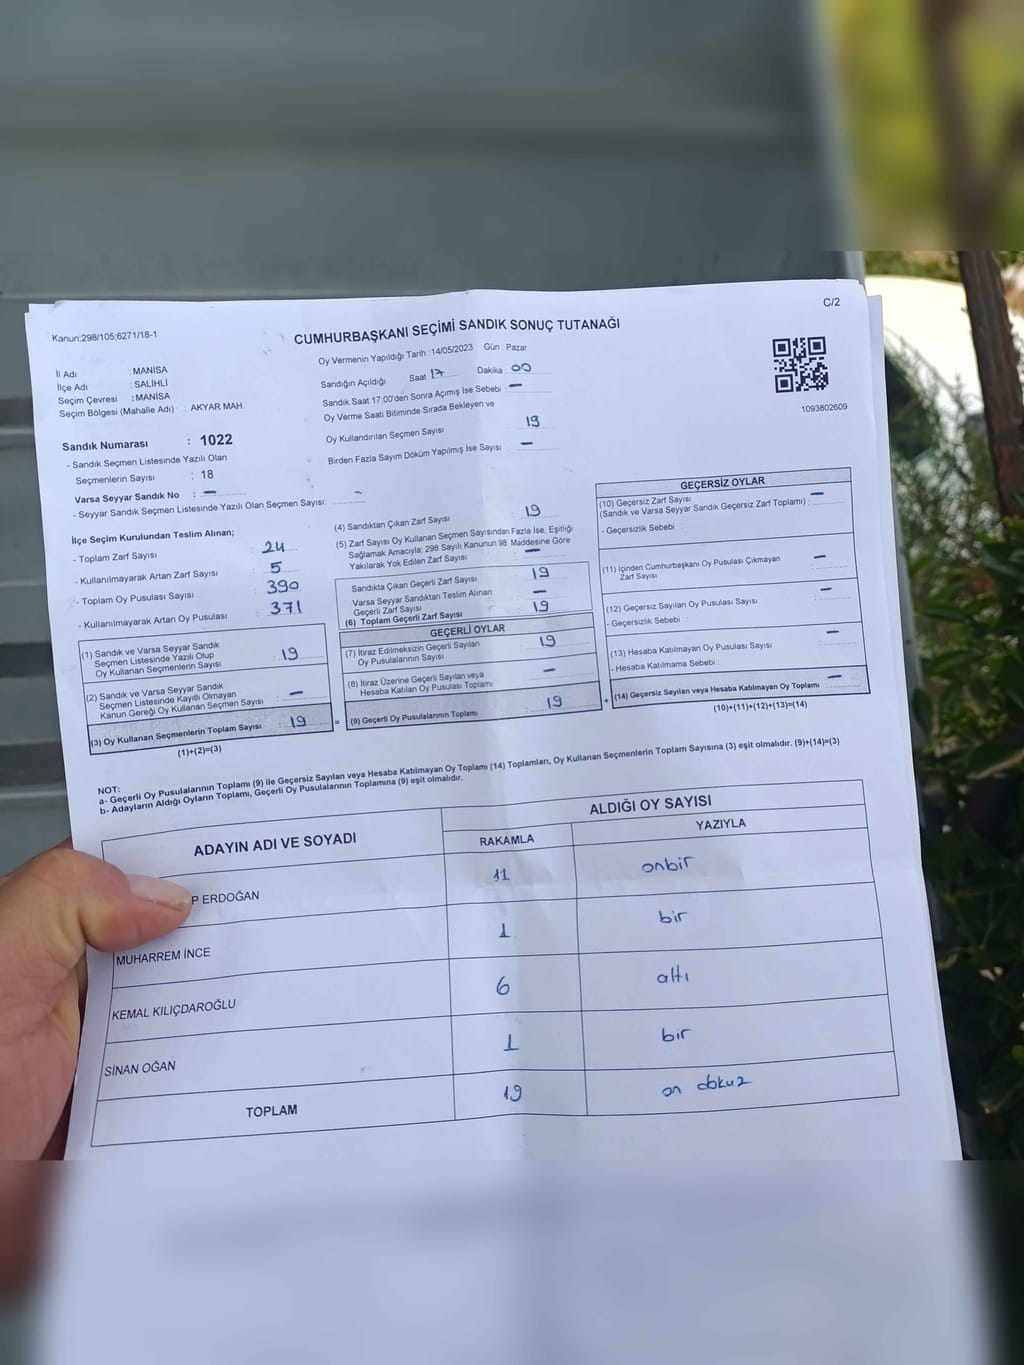 C/2
Kanun;298/105;6271/18-1
CUMHURBAŞKANI SEÇİMİ SANDIK SONUÇ TUTANAĞI
Oy Vermenin Yapıldığı Tarih : 14/05/2023 Gün : Pazar
İl Adı : MANİSA
İlçe Adı : SALİHLİ
Seçim Çevresi : MANİSA
Seçim Bölgesi (Mahalle Adı) : AKYAR MAH.
Sandığın Açıldığı Saat 17 Dakika : 00
Sandık Saat 17:00'den Sonra Açılmış İse Sebebi : —
Oy Verme Saati Bitiminde Sırada Bekleyen ve
Oy Kullandırılan Seçmen Sayısı : 19
Birden Fazla Sayım Döküm Yapılmış İse Sayısı : —
1093802609
Sandık Numarası : 1022
- Sandık Seçmen Listesinde Yazılı Olan
Seçmenlerin Sayısı : 18
Varsa Seyyar Sandık No : —
- Seyyar Sandık Seçmen Listesinde Yazılı Olan Seçmen Sayısı: —
İlçe Seçim Kurulundan Teslim Alınan;
- Toplam Zarf Sayısı : 24
- Kullanılmayarak Artan Zarf Sayısı : 5
- Toplam Oy Pusulası Sayısı : 390
- Kullanılmayarak Artan Oy Pusulası : 371
(1) Sandık ve Varsa Seyyar Sandık
Seçmen Listesinde Yazılı Olup
Oy Kullanan Seçmenlerin Sayısı : 19
(2) Sandık ve Varsa Seyyar Sandık
Seçmen Listesinde Kayıtlı Olmayan
Kanun Gereği Oy Kullanan Seçmen Sayısı : —
(3) Oy Kullanan Seçmenlerin Toplam Sayısı : 19 =
(1)+(2)=(3)
(4) Sandıktan Çıkan Zarf Sayısı : 19
(5) Zarf Sayısı Oy Kullanan Seçmen Sayısından Fazla İse, Eşitliği
Sağlamak Amacıyla; 298 Sayılı Kanunun 98. Maddesine Göre
Yakılarak Yok Edilen Zarf Sayısı : —
Sandıkta Çıkan Geçerli Zarf Sayısı : 19
Varsa Seyyar Sandıktan Teslim Alınan
Geçerli Zarf Sayısı : —
(6) Toplam Geçerli Zarf Sayısı : 19
GEÇERLİ OYLAR
(7) İtiraz Edilmeksizin Geçerli Sayılan
Oy Pusulalarının Sayısı : 19
(8) İtiraz Üzerine Geçerli Sayılan veya
Hesaba Katılan Oy Pusulası Toplamı : —
(9) Geçerli Oy Pusulalarının Toplamı : 19 +
GEÇERSİZ OYLAR
(10) Geçersiz Zarf Sayısı
(Sandık ve Varsa Seyyar Sandık Geçersiz Zarf Toplamı) : —
- Geçersizlik Sebebi :
(11) İçinden Cumhurbaşkanı Oy Pusulası Çıkmayan
Zarf Sayısı : —
(12) Geçersiz Sayılan Oy Pusulası Sayısı : —
- Geçersizlik Sebebi :
(13) Hesaba Katılmayan Oy Pusulası Sayısı : —
- Hesaba Katılmama Sebebi :
(14) Geçersiz Sayılan veya Hesaba Katılmayan Oy Toplamı : —
(10)+(11)+(12)+(13)=(14)
NOT:
a- Geçerli Oy Pusulalarının Toplamı (9) ile Geçersiz Sayılan veya Hesaba Katılmayan Oy Toplamı (14) Toplamları, Oy Kullanan Seçmenlerin Toplam Sayısına (3) eşit olmalıdır. (9)+(14)=(3)
b- Adayların Aldığı Oyların Toplamı, Geçerli Oy Pusulalarının Toplamına (9) eşit olmalıdır.
ADAYIN ADI VE SOYADI ALDIĞI OY SAYISI
RAKAMLA YAZIYLA
P ERDOĞAN 11 onbir
MUHARREM İNCE 1 bir
KEMAL KILIÇDAROĞLU 6 altı
SİNAN OĞAN 1 bir
TOPLAM 19 on dokuz